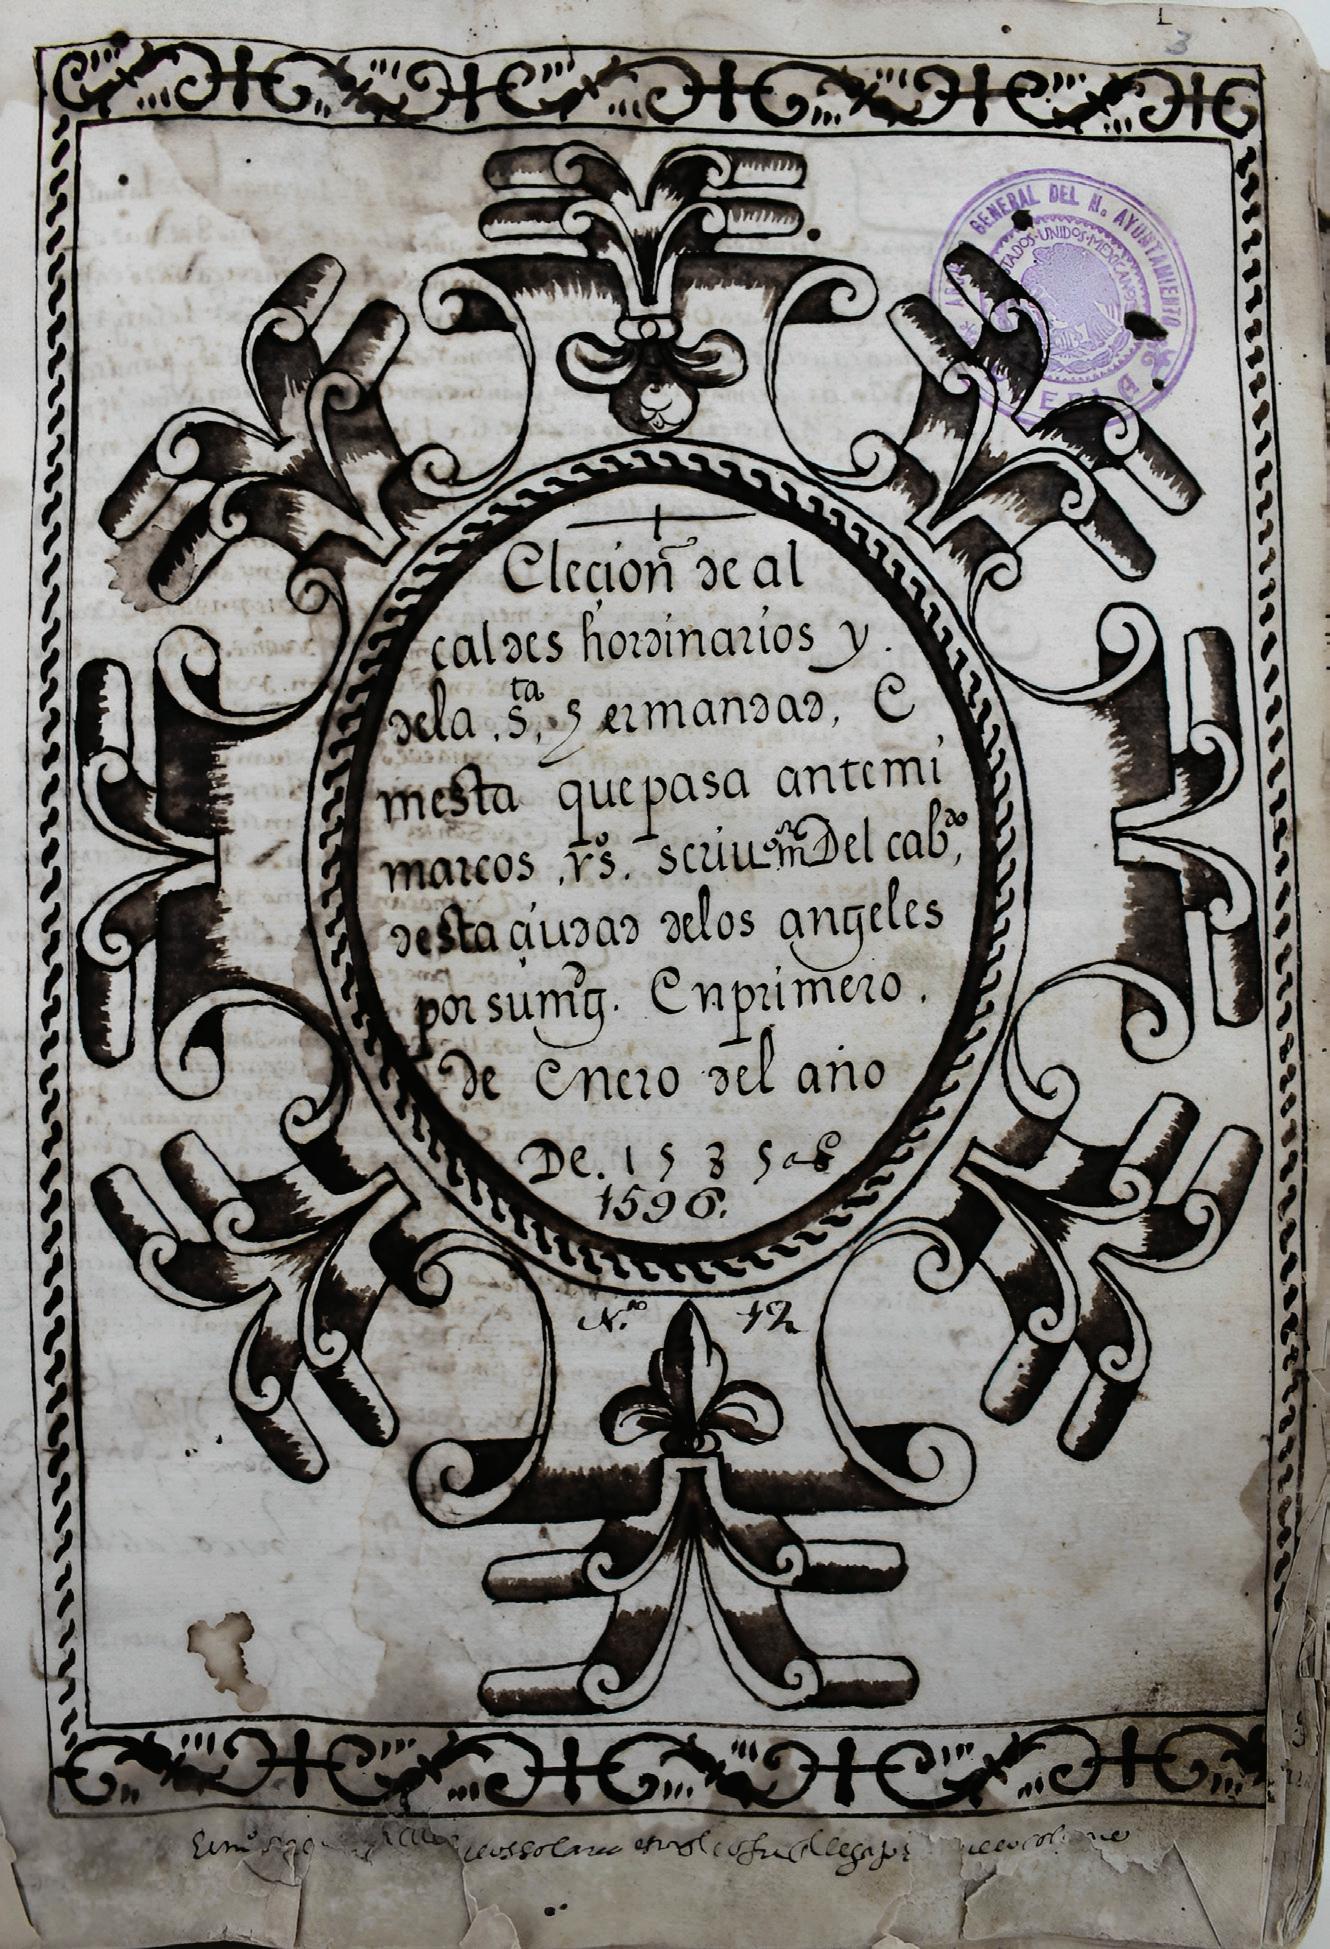 Elecion de al
caldes hordinarios y.
dela .s.ta hermandad, E
mesta que pasa ante mi
marcos .rs. scriu.on m.or Del cab.do,
desta ciudad delos angeles
por su mg. En primero.
de Enero del año
De. 1 5 3 5 a 8
1596.
N.ro 12
GENERAL DEL H. AYUNTAMIENTO
ESTADOS·UNIDOS·MEXICANOS